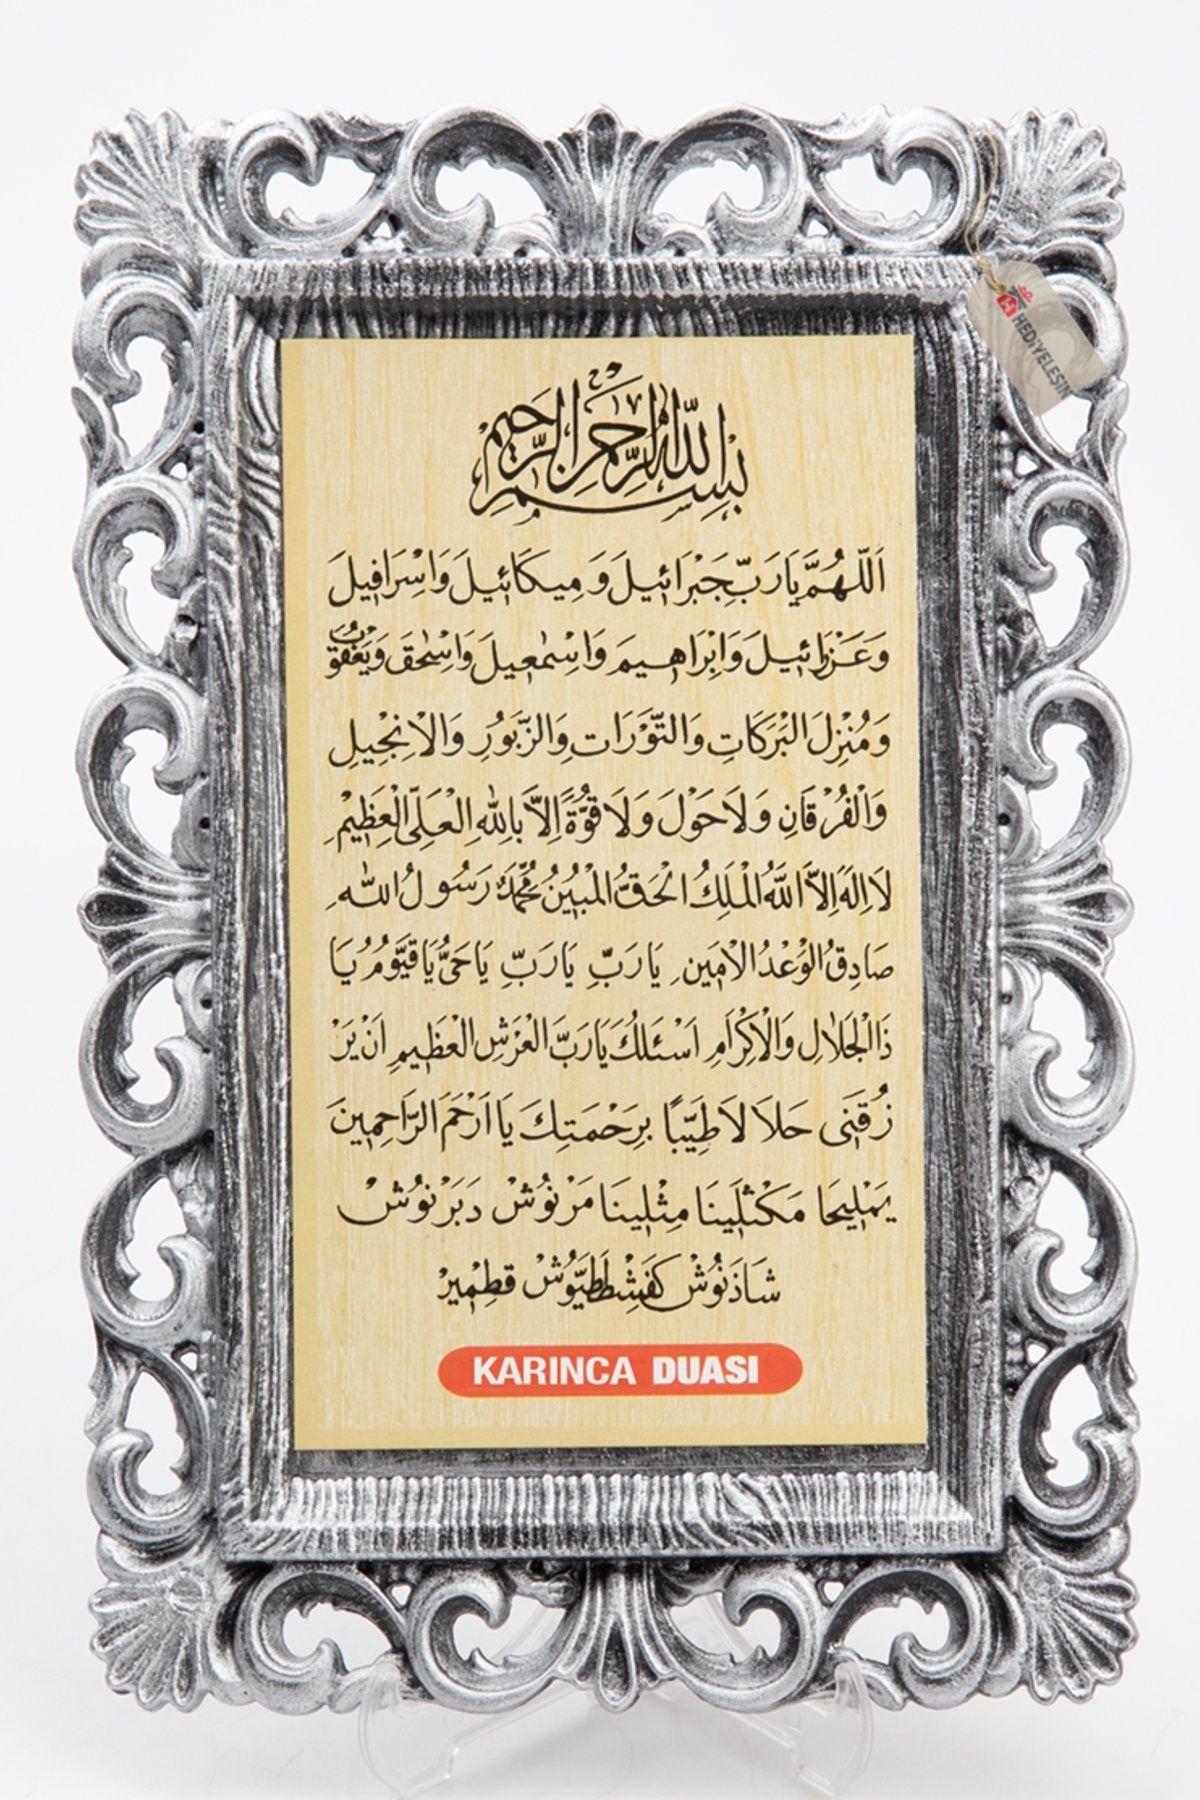 بِسْمِ اللهِ الرَّحْمٰنِ الرَّحِيمِ
اَللّٰهُمَّ يَارَبَّ جَبْرَائِيلَ وَ مِيكَائِيلَ وَاسْرَافِيلَ
وَعَزْرَائِيلَ وَاِبْرَاهِيمَ وَاسْمٰعِيلَ وَاسْحٰقَ وَيَعْقُوبَ
وَمُنْزِلَ الْبَرَكَاتِ وَالتَّوْرَاتِ وَالزَّبُورِ وَالْاِنْجِيلِ
وَالْفُرْقَانِ وَلَاحَوْلَ وَلَاقُوَّةَ اِلاَّ بِاللهِ الْعَلِىِّ الْعَظِيْمِ
لَا اِلٰهَ اِلاَّ اللهُ الْمَلِكُ الْحَقُّ الْمُبِيْنُ مُحَمَّدٌ رَسُولُ اللهِ
صَادِقُ الْوَعْدُ الْاَمِينِ يَارَبِّ يَارَبِّ يَاحَىُّ يَاقَيُّومُ يَا
ذَاالْجَلَالِ وَالْاِكْرَامِ اَسْئَلُكَ يَارَبَّ الْعَرْشِ الْعَظِيمِ اَنْ يَرْ
زُقَنِى حَلَا لَا طَيِّبًا بِرَحْمَتِكَ يَا اَرْحَمَ الرَّاحِمِينَ
يَمْلِيحَا مَكْثَلِينَا مِثْلِينَا مَرْنُوشْ دَبَرْنُوشْ
شَاذَنُوشْ كَفَشْطَطَيُّوشْ قِطْمِيرْ
KARINCA DUASI
HEDİYELEŞİN